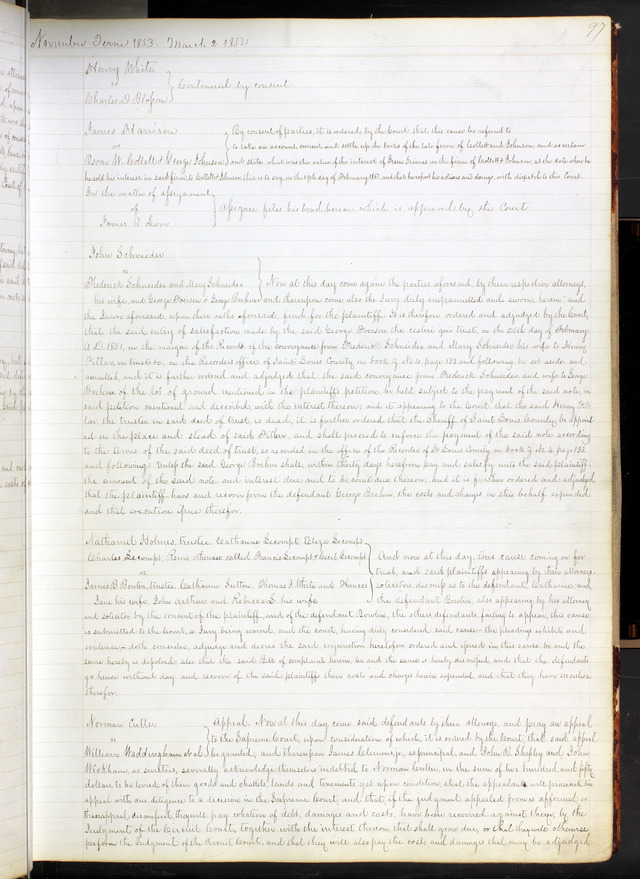 97
November Term 1853. March 2 1854
Henry White
vs
Charles D. Blossom
Continued by consent
James Harrison
vs
Oscar W. Collett & George Johnson
By consent of parties, it is ordered by the Court, that this cause be referred to
to take an account current and settle up the books of the late firm of Collett and Johnson, and ascertain
and state what was the value of the interest of in the firm of Collett & Johnson, at the date when he
he sold his interest in said firm to Collett & Johnson, that is to say, on the day of February 1851, and that he report his actions and doings, with dispatch to this Court.
In the matter of assignment
of
James
assignee files his bond herein which is approved by the Court
John Schneider
vs
Frederick Schneider and Mary Schneider
Now at this day come again the parties aforesaid, by their respective attorneys,
his wife, and George and George Brehm and thereupon come also the Jury duly empannelled and sworn, herein and
the Jurors aforesaid, upon their oaths aforesaid find for the plaintiff. It is therefore ordered and adjudged by the Court,
that the said entry of satisfaction made by the said George the cestui que trust, on the 25th day of February
A.D. 1851, in the margin of the Record, of the conveyance from Frederick Schneider and Mary Schneider his wife to Henry
Pitlar, in trust &c., in the Recorders office of Saint Louis County in book page 132 and following be set aside and
annulled, and it is further ordered and adjudged that the said conveyance from Frederick Schneider and wife to George
Brehm of the lot of ground mentioned in the plaintiff's petition, be held subject to the payment of the said note, in
said petition mentioned and described, with the interest thereon; and it appearing to the Court, that the said Henry Pit-
lar, the trustee in said deed of trust is dead, it is further ordered that the Sheriff of Saint Louis County, be appoint-
ed in the place and stead of said Pitlar, and shall proceed to enforce the payment of the said note according
to the terms of the said deed of trust, as recorded in the office of the Recorder of St Louis County in book page 132,
and following; Unless the said George Brehm shall, within thirty days herefrom pay and satisfy unto the said plaintiff,
the amount of the said note and interest due and to become due thereon; and it is further ordered and adjudged,
that the plaintiff have and recover from the defendant George Brehm, the costs and charges in this behalf expended
and that execution issue therefor.
Nathaniel Holmes, trustee, Catharine Lecompt, Eliza Lecompt,
Charles Lecompt, Remi, otherwise called Francis Lecompt & Cecil Lecompt
vs
James B. Bowlin, trustee, Catharine Sutton, Thomas J. White and Frances
Jane his wife, John Arthur and Rebecca S. his wife
And now at this day, this cause coming on for
trial, and said plaintiffs appearing by their attorneys,
solicitors dismiss as to the defendant, Catharine, and
the defendant Bowlin, also appearing by his attorney
and solicitor by the consent of the plaintiff, and of the defendant Bowlin, the other defendants, failing to appear, this cause
is submitted to the Court, a Jury being waived, and the court, having duly considered said cause, the pleadings exhibits and
evidence, doth consider, adjudge and decree the said injunction heretofore ordered and issued in this cause, be and the
same hereby is dissolved, also that the said Bill of complaint herein, be and the same is hereby dismissed, and that the defendants
go hence without day and recover of the said plaintiffs their costs and charges herein expended, and that they have execution
therefor.
Norman Cutter
vs
William Waddingham et al
Appeal. Now at this day come said defendants by their attorneys, and pray an appeal
to the Supreme Court, upon consideration of which, it is ordered by the Court, that said appeal
be granted; and thereupon James Clemens jr, as principal, and John R. Shepley and John
Wickham, as sureties, severally acknowledge themselves indebted to Norman Cutter, in the sum of two hundred and fifty
dollars, to be levied of their goods and chattels, lands and tenements; yet upon condition, that the appellants will prosecute their
appeal with due diligence to a decision in the Supreme Court, and that, if the judgment appealed from is affirmed, or
their appeal dismissed, they will pay whatever of debt, damages and costs, have been recovered against them, by the
Judgment of the Circuit Court, together with the interest thereon, that shall grow due, or that they will otherwise
perform the Judgment of the Circuit Court, and that they will also pay the costs and damages that may be adjudged